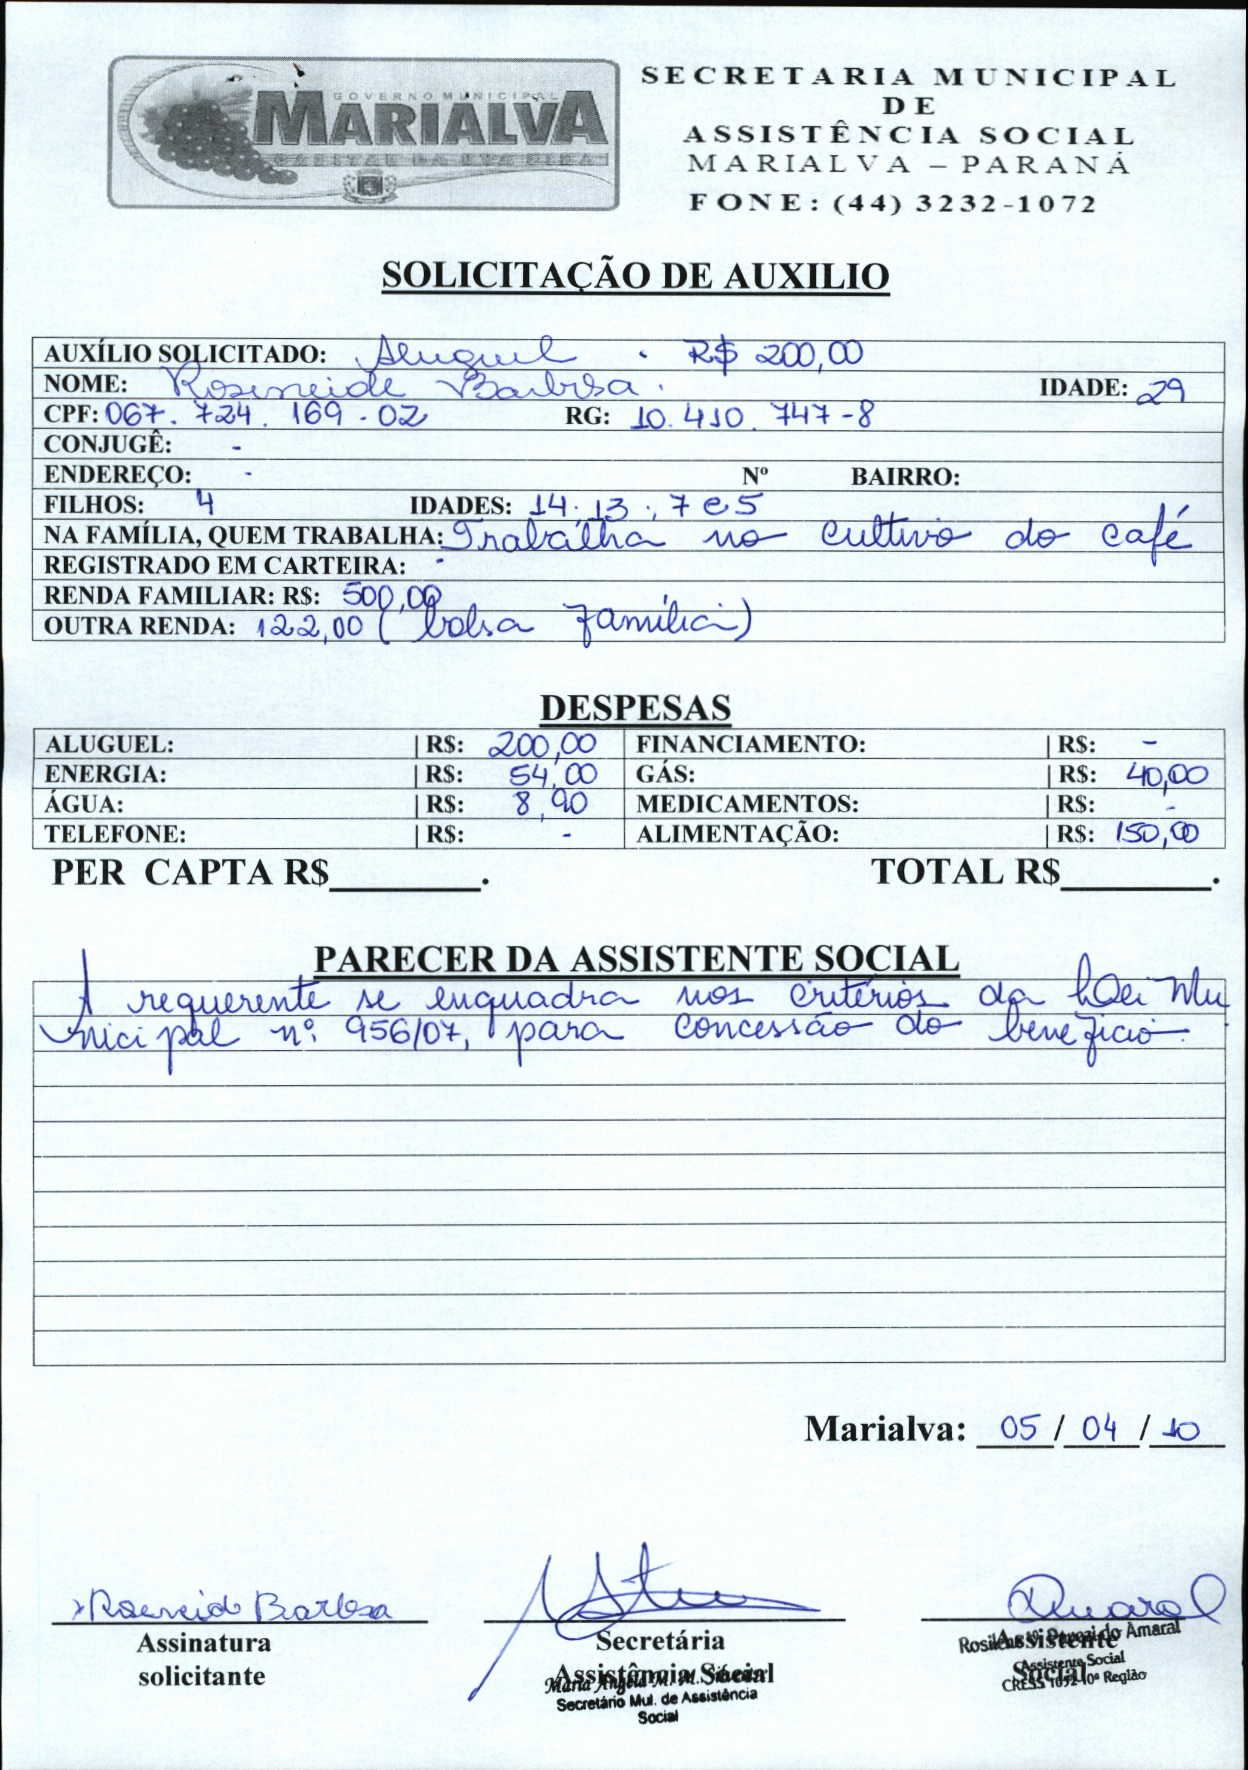 GOVERNO MUNICIPAL
MARIALVA
CAPITAL DA UVA FINA
SECRETARIA MUNICIPAL
DE
ASSISTÊNCIA SOCIAL
MARIALVA – PARANÁ
FONE: (44) 3232-1072
SOLICITAÇÃO DE AUXILIO
AUXÍLIO SOLICITADO: Aluguel . R$ 200,00
NOME: Roseneide Barbosa. IDADE: 29
CPF: 067. 724. 169 - 02 RG: 10. 410. 747-8
CONJUGÊ: -
ENDEREÇO: - Nº BAIRRO:
FILHOS: 4 IDADES: 14. 13 ., 7 e 5
NA FAMÍLIA, QUEM TRABALHA: Trabalha no cultivo do café
REGISTRADO EM CARTEIRA: -
RENDA FAMILIAR: R$: 500,00
OUTRA RENDA: 122,00 ( bolsa família)
DESPESAS
ALUGUEL: | R$: 200,00 FINANCIAMENTO: | R$: -
ENERGIA: | R$: 54,00 GÁS: | R$: 40,00
ÁGUA: | R$: 8,90 MEDICAMENTOS: | R$: -
TELEFONE: | R$: - ALIMENTAÇÃO: | R$: 150,00
PER CAPTA R$________. TOTAL R$________.
PARECER DA ASSISTENTE SOCIAL
A requerente se enquadra nos critérios da Lei Mu
nicipal nº: 956/07, para concessão do benefício.
Marialva: 05 / 04 / 10
Roseneide Barbosa Amaral
Assinatura
solicitante
Secretária
Assistência Social
Maria Angela M. M.
Secretário Mul. de Assistência
Social
Assistente
Social
Amaral
Assistente Social
CRESS 10ª Região